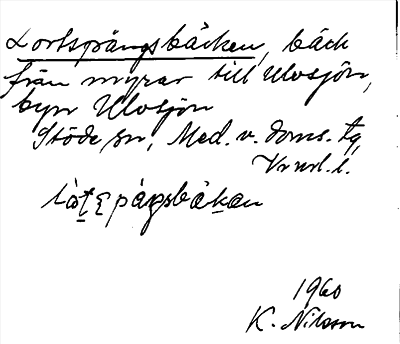 Lortspångsbäcken, bäck
från myrar till Ulvsjön,
byn Ulvsjön
Stöde sn, Med. v. doms. tg,
Vnrl. l.
1960
K. Nilsson